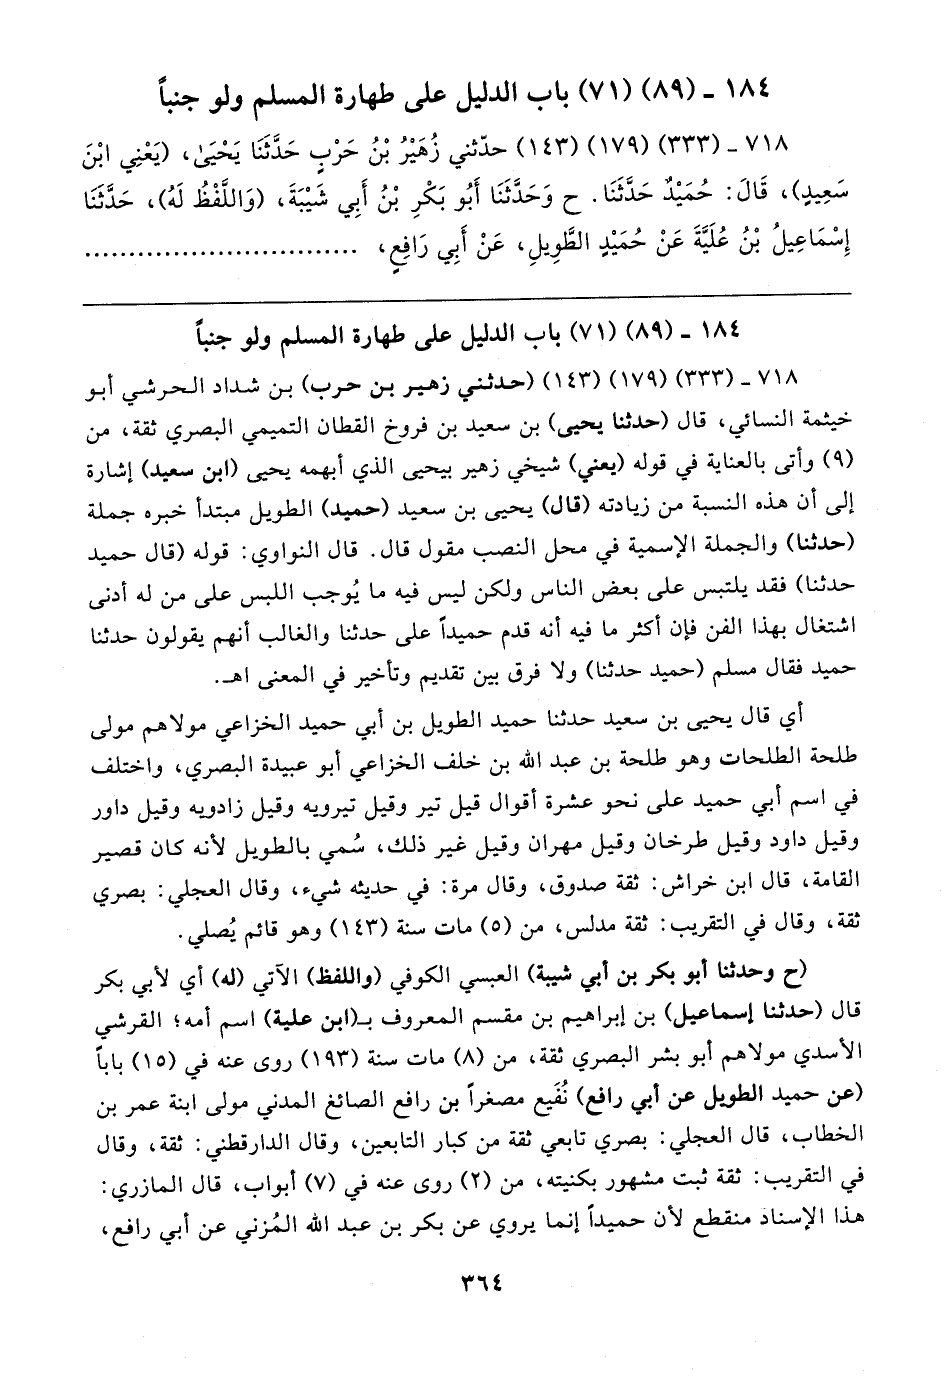 ١٨٤ ـ (٨٩) (٧١) باب الدليل على طهارة المسلم ولو جنباً
٧١٨ ـ (٣٣٣) (١٧٩) (١٤٣) حدّثني زُهَيْرُ بْنُ حَرْبٍ حَدَّثَنَا يَحْيَىٰ، (يَعْنِي ابْنَ
سَعِيدٍ)، قَالَ: حُمَيْدٌ حَدَّثَنَا. ح وَحَدَّثَنَا أَبُو بَكْرِ بْنُ أَبِي شَيْبَةَ، (وَاللَّفْظُ لَهُ)، حَدَّثَنَا
إِسْمَاعِيلُ بْنُ عُلَيَّةَ عَنْ حُمَيْدٍ الطَّوِيلِ، عَنْ أَبِي رَافِعٍ، ..............................
١٨٤ ـ (٨٩) (٧١) باب الدليل على طهارة المسلم ولو جنباً
٧١٨ ـ (٣٣٣) (١٧٩) (١٤٣) (حدثني زهير بن حرب) بن شداد الحرشي أبو
خيثمة النسائي، قال (حدثنا يحيى) بن سعيد بن فروخ القطان التميمي البصري ثقة، من
(٩) وأتى بالعناية في قوله (يعني) شيخي زهير بيحيى الذي أبهمه يحيى (ابن سعيد) إشارة
إلى أن هذه النسبة من زيادته (قال) يحيى بن سعيد (حميد) الطويل مبتدأ خبره جملة
(حدثنا) والجملة الإسمية في محل النصب مقول قال. قال النواوي: قوله (قال حميد
حدثنا) فقد يلتبس على بعض الناس ولكن ليس فيه ما يُوجب اللبس على من له أدنى
اشتغال بهذا الفن فإن أكثر ما فيه أنه قدم حميداً على حدثنا والغالب أنهم يقولون حدثنا
حميد فقال مسلم (حميد حدثنا) ولا فرق بين تقديم وتأخير في المعنى اهـ.
أي قال يحيى بن سعيد حدثنا حميد الطويل بن أبي حميد الخزاعي مولاهم مولى
طلحة الطلحات وهو طلحة بن عبد الله بن خلف الخزاعي أبو عبيدة البصري، واختلف
في اسم أبي حميد على نحو عشرة أقوال قيل تير وقيل تيرويه وقيل زادويه وقيل داور
وقيل داود وقيل طرخان وقيل مهران وقيل غير ذلك، سُمي بالطويل لأنه كان قصير
القامة، قال ابن خراش: ثقة صدوق، وقال مرة: في حديثه شيء، وقال العجلي: بصري
ثقة، وقال في التقريب: ثقة مدلس، من (٥) مات سنة (١٤٣) وهو قائم يُصلي.
(ح وحدثنا أبو بكر بن أبي شيبة) العبسي الكوفي (واللفظ) الآتي (له) أي لأبي بكر
قال (حدثنا إسماعيل) بن إبراهيم بن مقسم المعروف بـ(ابن علية) اسم أمه؛ القرشي
الأسدي مولاهم أبو بشر البصري ثقة، من (٨) مات سنة (١٩٣) روى عنه في (١٥) باباً
(عن حميد الطويل عن أبي رافع) نُفَيع مصغراً بن رافع الصائغ المدني مولى ابنة عمر بن
الخطاب، قال العجلي: بصري تابعي ثقة من كبار التابعين، وقال الدارقطني: ثقة، وقال
في التقريب: ثقة ثبت مشهور بكنيته، من (٢) روى عنه في (٧) أبواب، قال المازري:
هذا الإسناد منقطع لأن حميداً إنما يروي عن بكر بن عبد الله المُزني عن أبي رافع،
٣٦٤